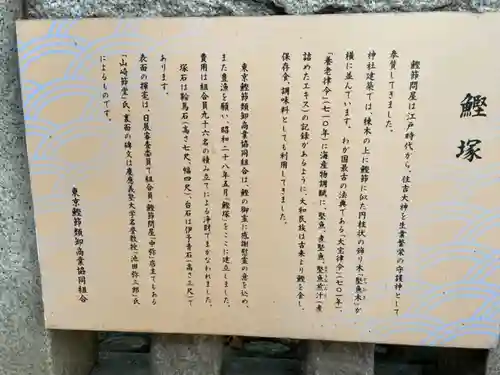 鰹塚
鰹節問屋は江戸時代から、住吉大神を生業繁栄の守護神として
奉賛してきました。
神社建築では、棟木の上に鰹節に似た円柱状の飾り木「堅魚木」が
横に並んでいます。わが国最古の法典である「大宝律令」(七〇一年)、
「養老律令」(七一〇年)に海産物調賦に、堅魚、煮堅魚、堅魚煎汁(煮
詰めたエキス)の記録があるように、大和民族は古来より鰹を食し、
保存食、調味料としても利用してきました。
東京鰹節類卸商業協同組合は、鰹の御霊に感謝慰霊の意を込め、
また豊漁を願い、昭和二十八年五月「鰹塚」をここに建立しました。
費用は組合員九十六名の積み立てによる浄財でまかなわれました。
塚石は鞍馬石(高さ七尺、幅四尺)、台石は伊予青石(高さ三尺)で
あります。
表面の揮毫は、日展審査委員で組合員(鰹節問屋「中弥」店主でもある
「山崎節堂」氏、裏面の碑文は慶應義塾大学名誉教授「池田弥三郎」氏
によるものです。
東京鰹節類卸商業協同組合